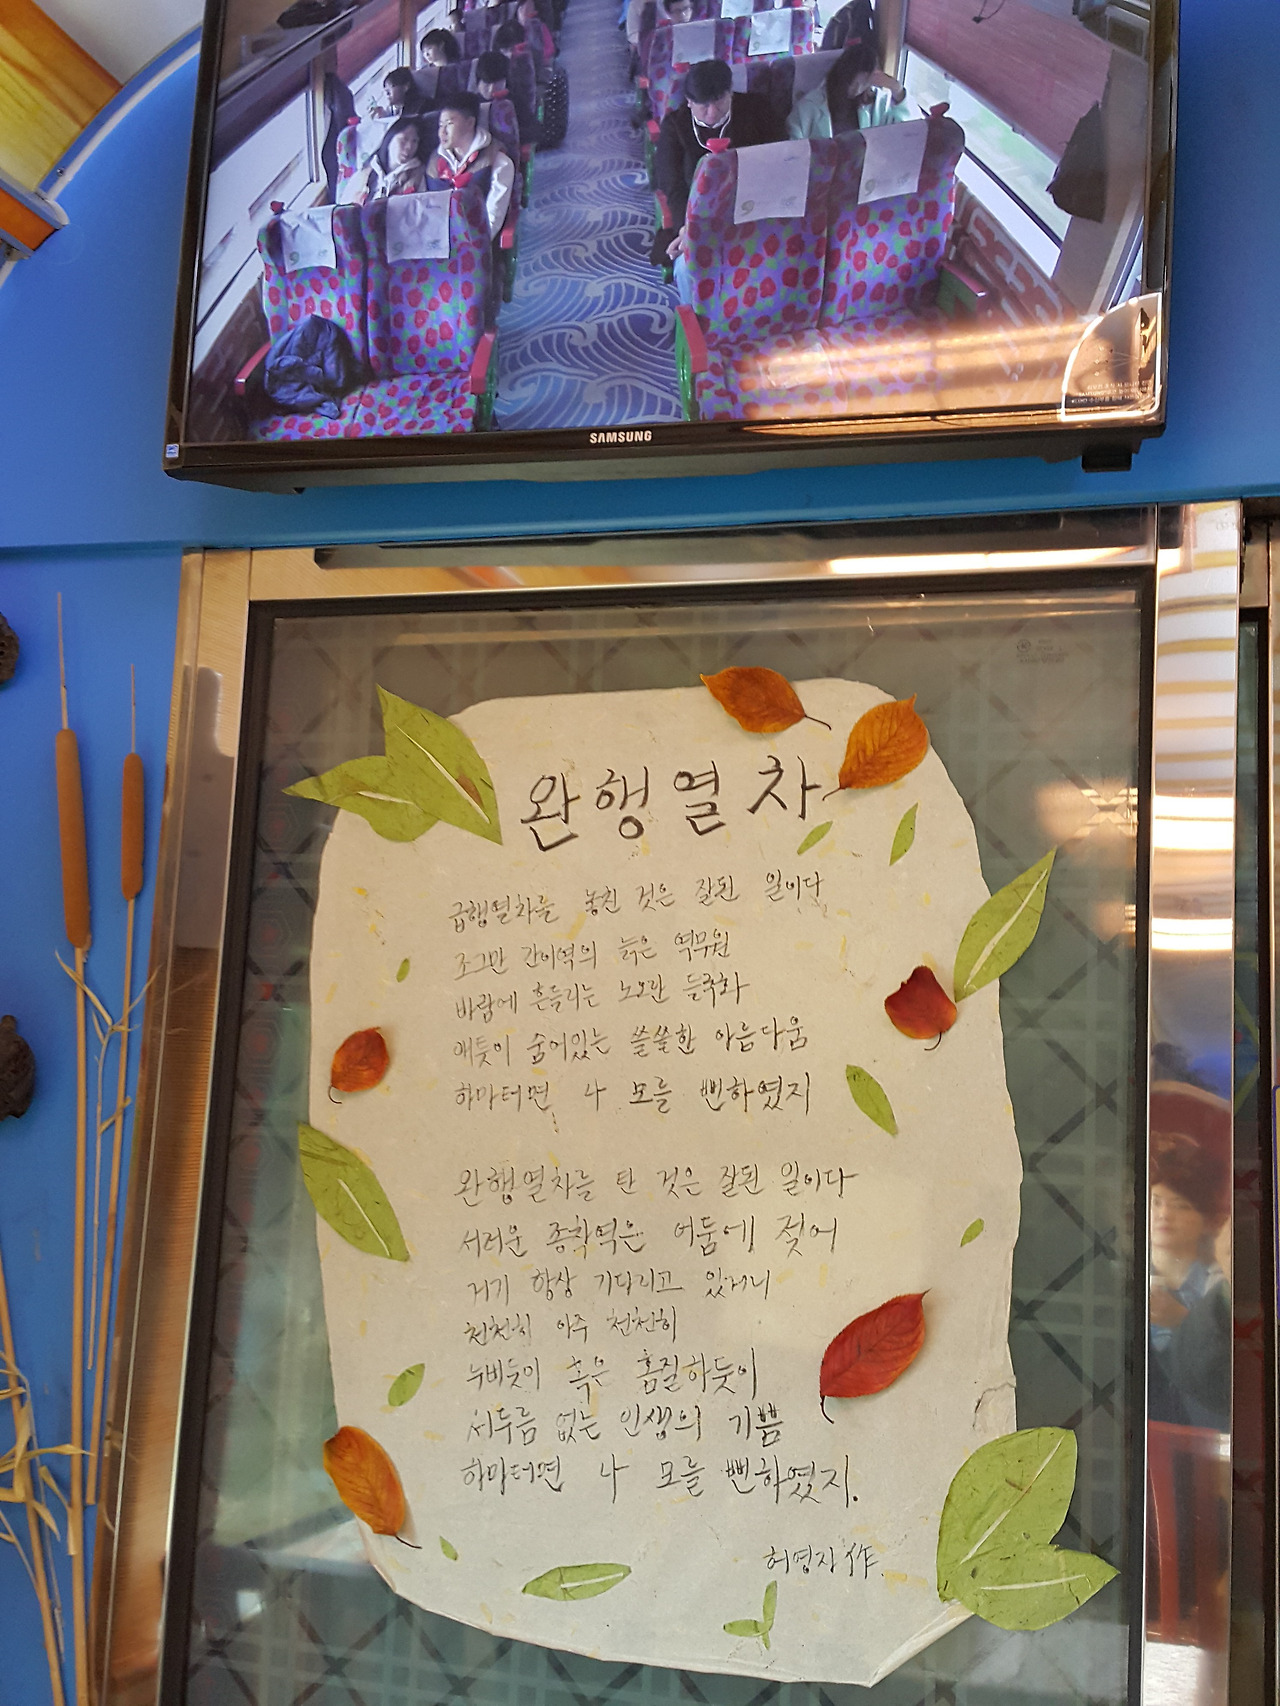 SAMSUNG
완행열차
급행열차를 놓친 것은 잘된 일이다
조그만 간이역의 늙은 역무원
바람에 흔들리는 노오란 들국화
애틋이 숨어있는 쓸쓸한 아름다움
하마터면 나 모를 뻔하였지
완행열차를 탄 것은 잘된 일이다
서러운 종착역은 어둠에 젖어
거기 항상 기다리고 있거니
천천히 아주 천천히
누비듯이 혹은 홈질하듯이
서두름 없는 인생의 기쁨
하마터면 나 모를 뻔하였지.
허영자 作